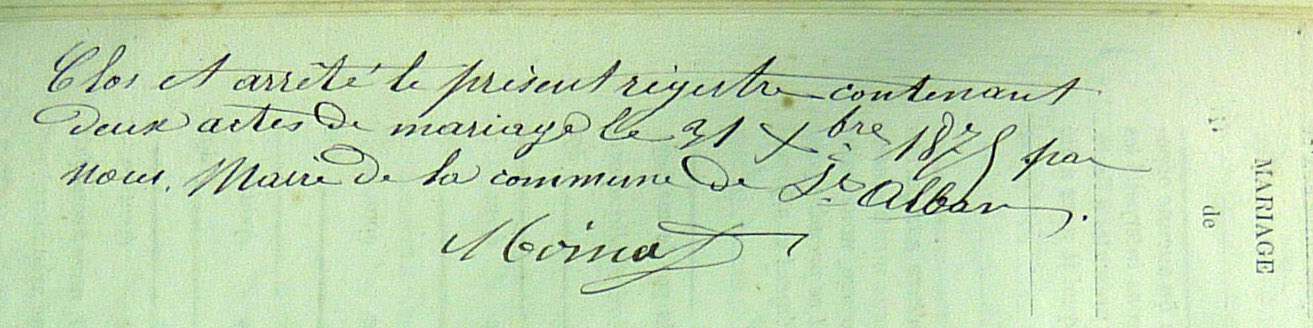 Clos et arrêté le présent régistre contenant
deux actes de mariage le 31 Xbre 1875 par
nous, Maire de la commune de St Alban.
Moinat
MARIAGE
de